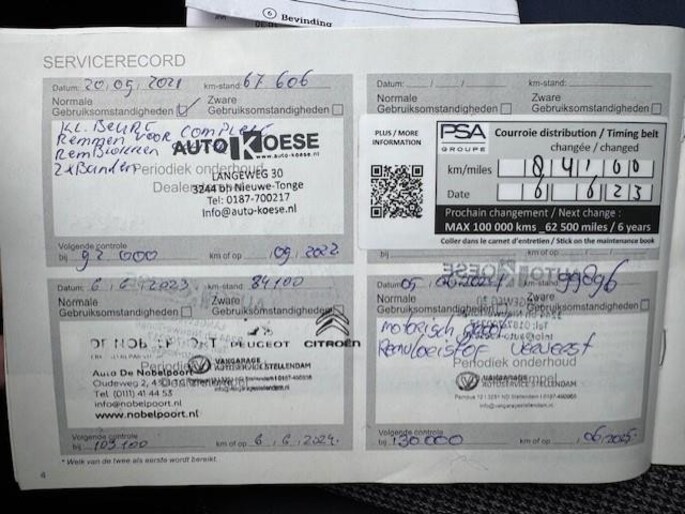 6 Bevinding
SERVICERECORD
Datum: 20.05.2021 km-stand: 67 606
Normale Gebruiksomstandigheden
Zware Gebruiksomstandigheden
KL. BEURT
Remmen voor compleet
Periodiek onderhoud
2x Banden
AUTO KOESE
www.auto-koese.nl
LANGEWEG 30
3244 bh Nieuwe-Tonge
Tel: 0187-700217
Info@auto-koese.nl
Volgende controle
bij 92 000 km of op 09.2022
Datum: / / km-stand:
Normale Gebruiksomstandigheden
Zware Gebruiksomstandigheden
PLUS / MORE
INFORMATION
PSA
GROUPE
Courroie distribution / Timing belt
changée / changed
km/miles 84100
Date 6 6 23
Prochain changement / Next change :
MAX 100 000 kms _62 500 miles / 6 years
Coller dans le carnet d'entretien / Stick on the maintenance book
Datum: 6.6.2023 km-stand: 84100
Normale Gebruiksomstandigheden
Zware Gebruiksomstandigheden
DE NOBELPOORT PEUGEOT CITROËN
Auto De Nobelpoort
VANGARAGE
AUTOSERVICE STELLENDAM
Oudeweg 2, 4
Tel. (0111) 41 44 53
info@nobelpoort.nl
www.nobelpoort.nl
Volgende controle
bij 103100 km of op 6.6.2024.
Datum: 05 km-stand: 99896
Normale Gebruiksomstandigheden
Zware Gebruiksomstandigheden
motorisch
Remvloeistof ververst
Periodiek onderhoud
VANGARAGE
AUTOSERVICE STELLENDAM
Volgende controle
bij 130000 km of op 06.2025.
* Welk van de twee als eerste wordt bereikt.
4